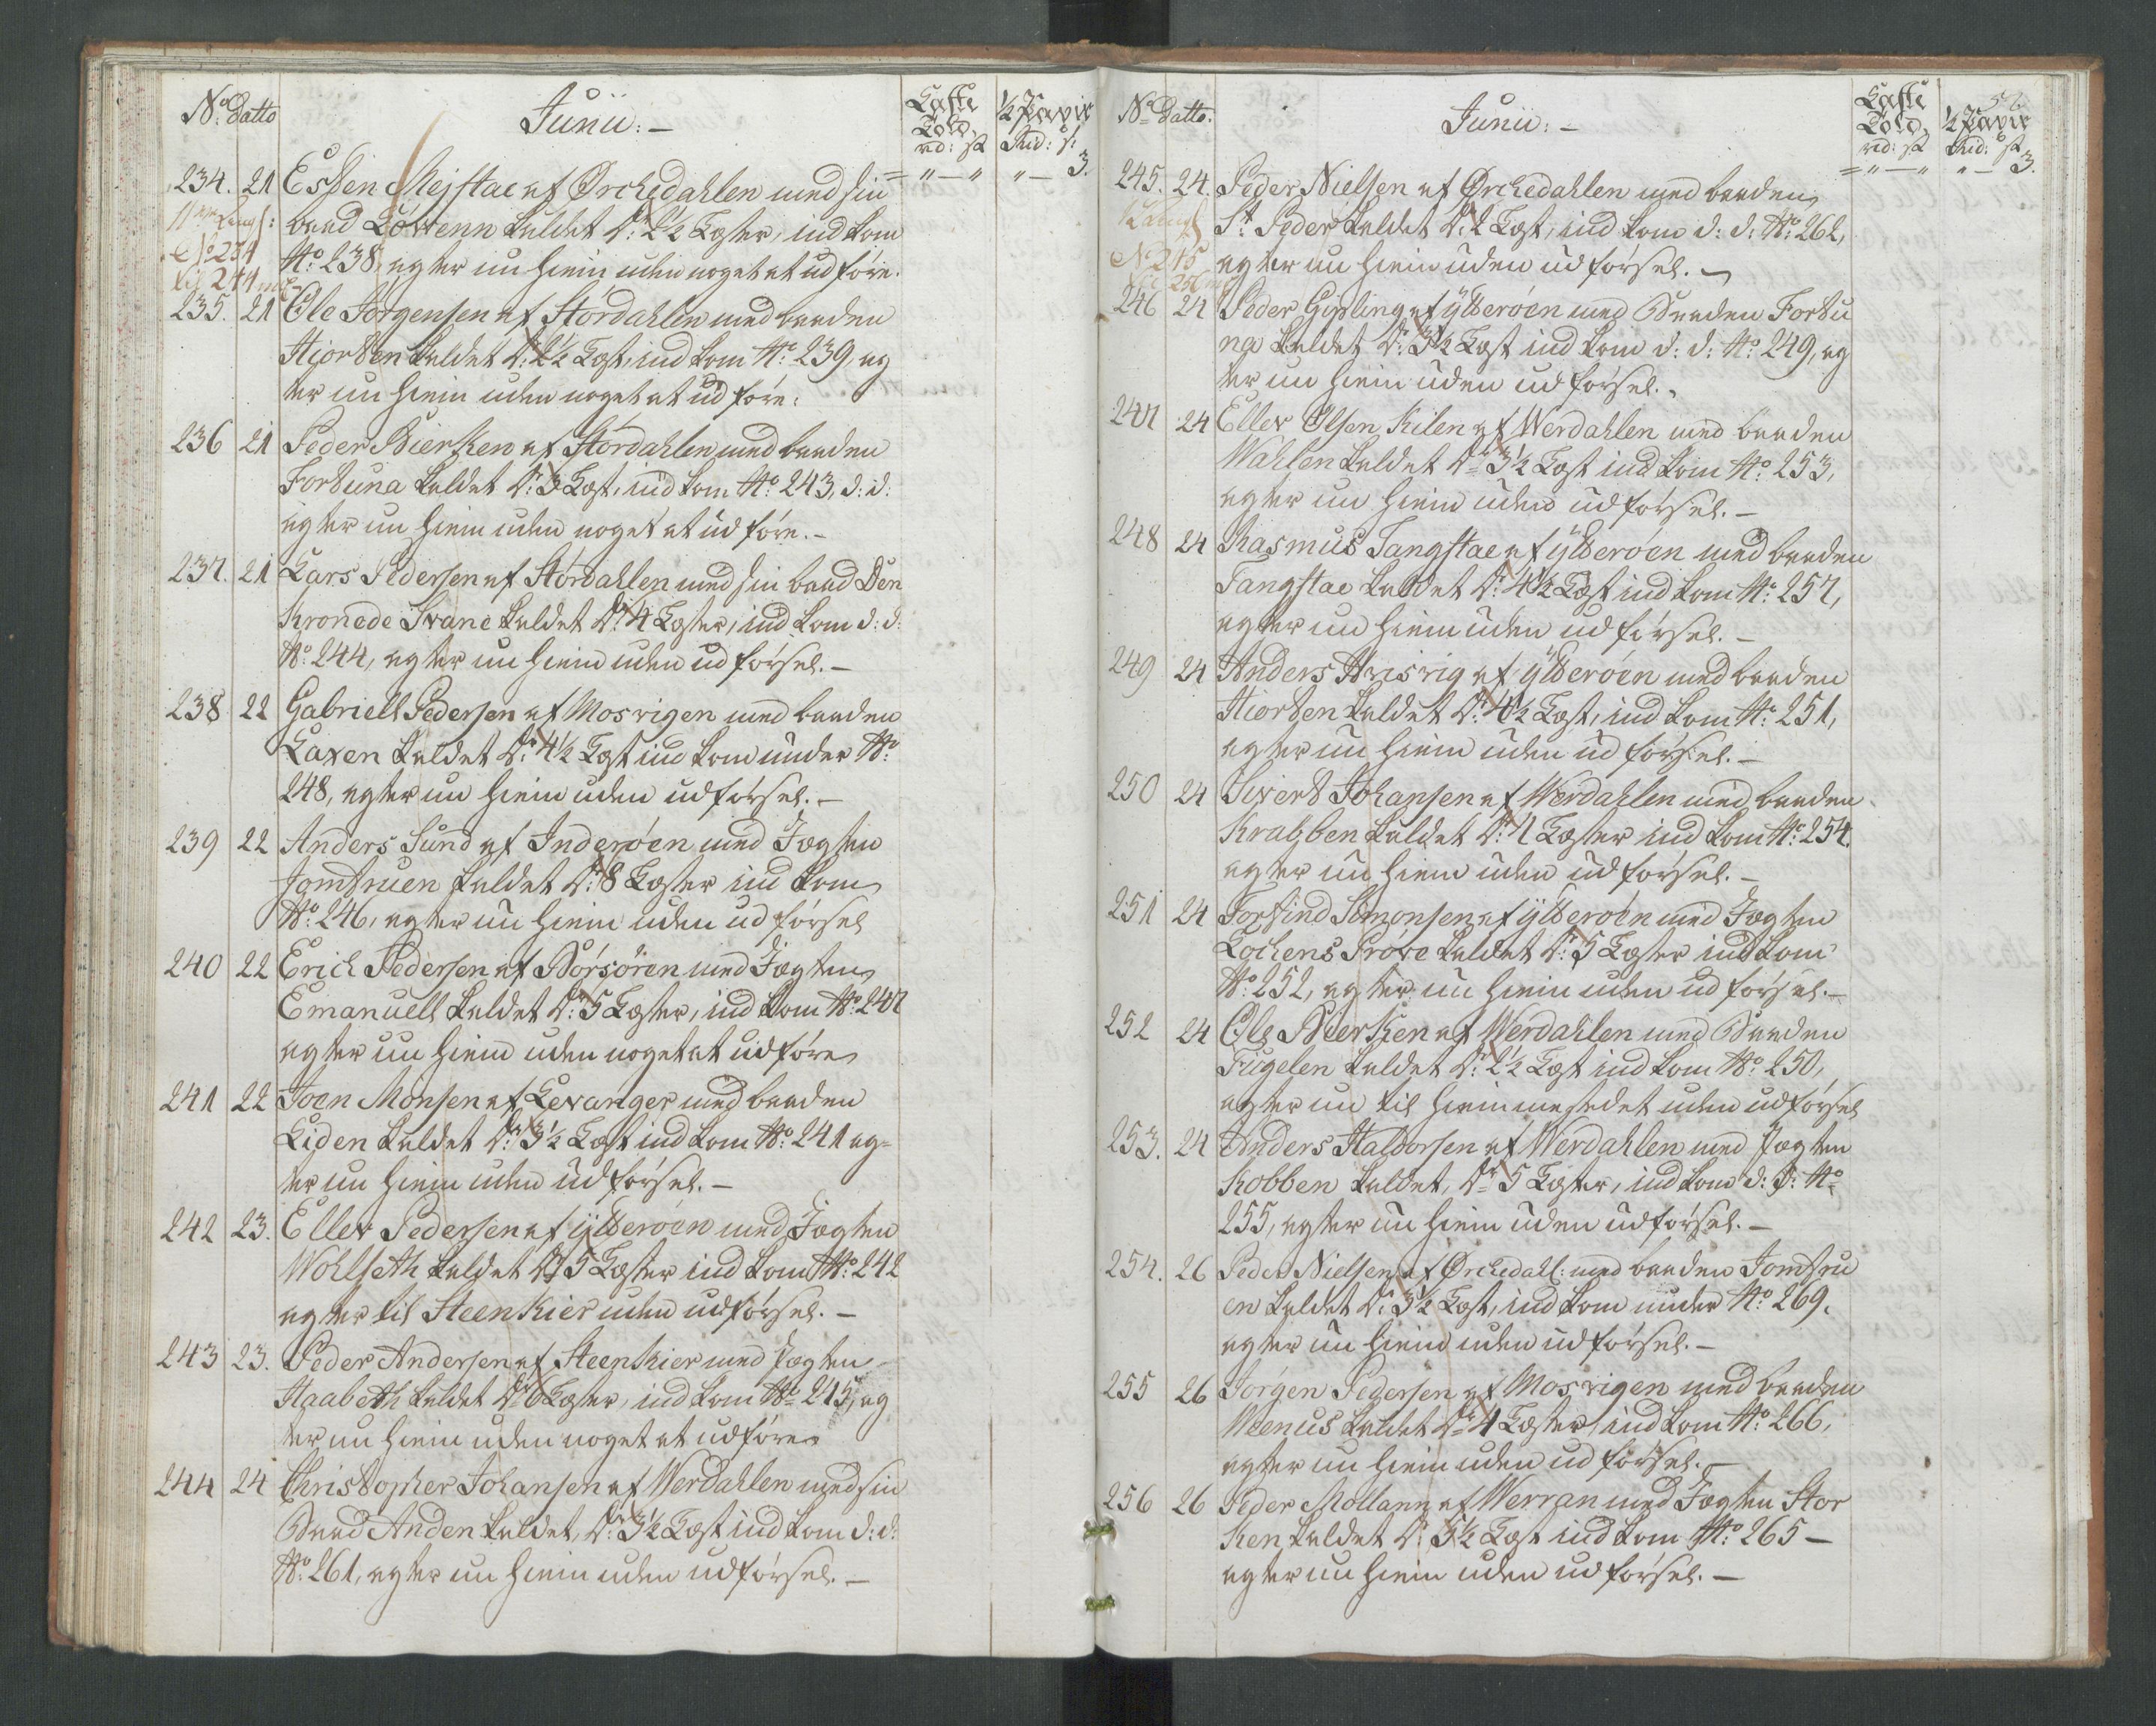 No: Datto
Junii: —
Laste Told. ½ Pavir
rd: sk Rd: s:
234. 21 Essten Mejstae af Örchedahlen med sin = " — " " — 3.
baad Lövenn kaldet Dr: 2½ Læster, ind kom
No: 234 No: 238, agter nu hiem uden noget at udföre.
til 244
235. 21 Ole Jörgensen af Stördahlen med baaden
Hiorten kaldet Dr: 2½ Læst, ind kom No: 239, ag
ter nu hiem uden noget at udföre.
236 21 Peder Bierken af Stördahlen med baaden
Fortuna kaldet Dr: 3 Læst, ind kom No: 243, d: d:
agter nu hiem uden noget at udföre. —
237. 21 Lars Pedersen af Stördahlen med sin baad Den
Kronede Svane kaldet Dr: 4 Læster, ind kom d: d:
No: 244, agter nu hiem uden udförsel. —
238 22 Gabriell Pedersen af Mosvigen med baaden
Laxen kaldet Dr: 4½ Læst ind kom under No:
248, agter nu hiem uden udförsel. —
239 22 Anders Sund af Inderöen med Jægten
Jomfruen kaldet Dr: 8 Læster ind kom
No: 246, agter nu hiem uden udförsel
240 22 Erich Pedersen af Börsören med Jægten
Emanuell kaldet Dr: 5 Læster, ind kom No: 247
agter nu hiem uden noget at udföre
241 22 Joen Monsen af Levanger med baaden
Liden kaldet Dr: 3½ Læst ind kom No: 241 ag=
ter nu hiem uden udförsel. —
242 23. Eller Pedersen af ÿtteröen med Jægten
Wohlseth kaldet Dr 5 Læster ind kom No: 242
agter til Steenkier uden udförsel. —
243 23. Peder Andersen af Steenkier med Jægten
Haabeth kaldet Dr 6 Læster, ind kom No: 245, ag
ter nu hiem uden noget at udföre
244 24 Christopher Johansen af Werdahlen med sin
Baad Anden kaldet, Dr: 3½ Læst ind kom d: d:
No: 261, agter nu hiem uden udförsel. —
No: Datto.
Junii: —
Laste Told, ½ Pavir
rd: sk Rd: sk
245. 24. Peder Nielsen af Örchedahlen med baaden = " — " " — 3.
St: Peder kaldet Dr: 2 Læst, ind kom d: d: No: 262,
No 245 agter nu hiem uden udförsel. —
246 24 Peder Gipling af ÿtteröen med Baaden Fortu
na kaldet Dr: 3½ Læst ind kom d: d: No: 249, ag
ter nu hiem uden udförsel.
247 24 Eller Olsen Kilen af Werdahlen med baaden
Wahlen kaldet Dr 3½ Læst ind kom No: 253,
agter nu hiem uden udförsel. —
248 24 Rasmus Tangstae af ÿtteröen med baaden
Tangstae kaldet Dr: 4½ Læst ind kom No: 257,
agter nu hiem uden udförsel. —
249 24 Anders Hvisvig af ÿtteröen med baaden
Hiorten kaldet Dr: 4½ Læst, ind kom No: 251,
agter nu hiem uden udförsel. —
250 24 Sivert Johansen af Werdahlen med baaden
Krabben kaldet Dr: 4 Læster ind kom No: 254.
agter nu hiem uden udförsel. —
251 24 Torfind Simonsen af ÿtteröen med Jægten
Lochens Pröve kaldet Dr: 5 Læster ind kom
No: 252, agter nu hiem uden udförsel. —
252 24 Ole Bierken af Werdahlen med Baaden
Fugelen kaldet Dr: 2½ Læst ind kom No: 250,
agter nu til hiemmestedet uden udförsel
253. 24 Anders Haldorsen af Werdahlen med Jægten
Kobben kaldet, Dr 5 Læster, ind kom d: d: No:
255, agter nu hiem uden udförsel. —
254. 26 Peder Nielsen af Örchedahl: med baaden Jomfru
en kaldet Dr: 3½ Læst, ind kom under No: 269.
agter nu hiem uden udförsel. —
255 26 Jörgen Pedersen af Mosvigen med baaden
Weenus kaldet Dr 4 Læster, ind kom No: 266,
agter nu hiem uden udförsel. —
256 26 Peder Mollann af Werran med Jægten Stor
ken kaldet Dr 5½ Læst ind kom No: 265 —
agter nu hiem uden udförsel. —